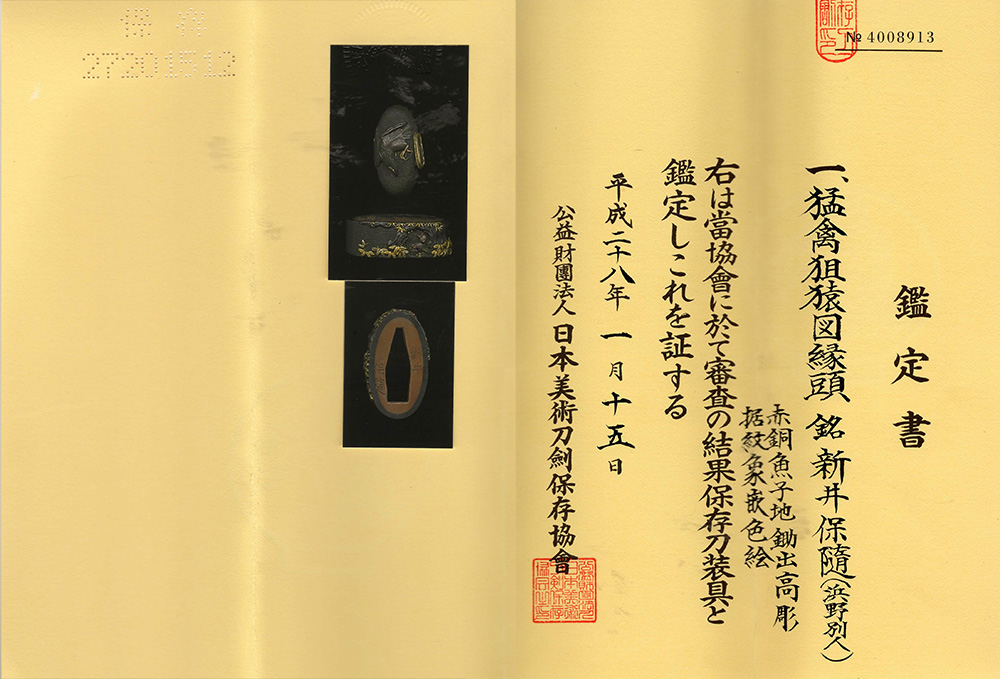 № 4008913
鑑定書
一、猛禽狙猿図縁頭 銘 新井保隨(浜野別人)
赤銅魚子地 鋤出高彫
据紋象嵌色絵
右は當協會に於て審査の結果保存刀装具と
鑑定しこれを証する
平成二十八年 一月十五日
公益財團法人 日本美術刀劍保存協會
保存